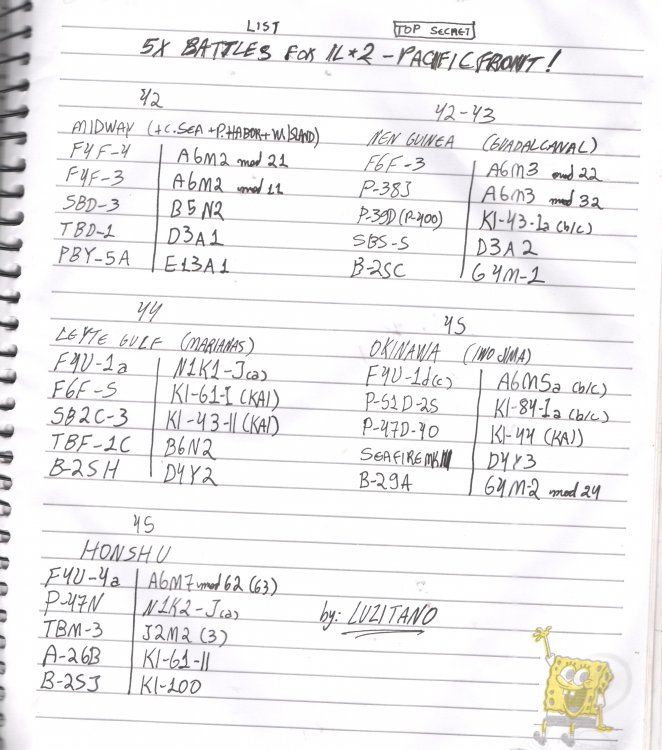 LIST TOP SECRET
5X BATTLES FOR IL*2 - PACIFIC FRONT!
42
MIDWAY (+C.SEA +P.HABOR + W.ISLAND)
F4F-4 A6M2 mod 21
F4F-3 A6M2 mod 11
SBD-3 B5N2
TBD-1 D3A1
PBY-5A E13A1
42-43
NEN GUINEA (GUADALCANAL)
F6F-3 A6M3 mod 22
P-38J A6M3 mod 32
P-39D (P-400) KI-43-Ia (b/c)
SBS-5 D3A2
B-25C G4M-1
44
LEYTE GULF (MARIANAS)
F4U-1a N1K1-J(a)
F6F-5 KI-61-I (KAI)
SB2C-3 KI-43-II (KAI)
TBF-1C B6N2
B-25H D4Y2
45
OKINAWA (IWO JIMA)
F4U-1d(c) A6M5a (b/c)
P-51D-25 KI-84-Ia (b/c)
P-47D-40 KI-44 (KAI)
SEAFIRE MKIII D4Y3
B-29A G4M-2 mod 24
45
HONSHU
F4U-4a A6M7 mod 62 (63)
P-47N N1K2-J(a)
TBM-3 J2M2 (3)
A-26B KI-61-II
B-25J KI-100
by: LUZITANO